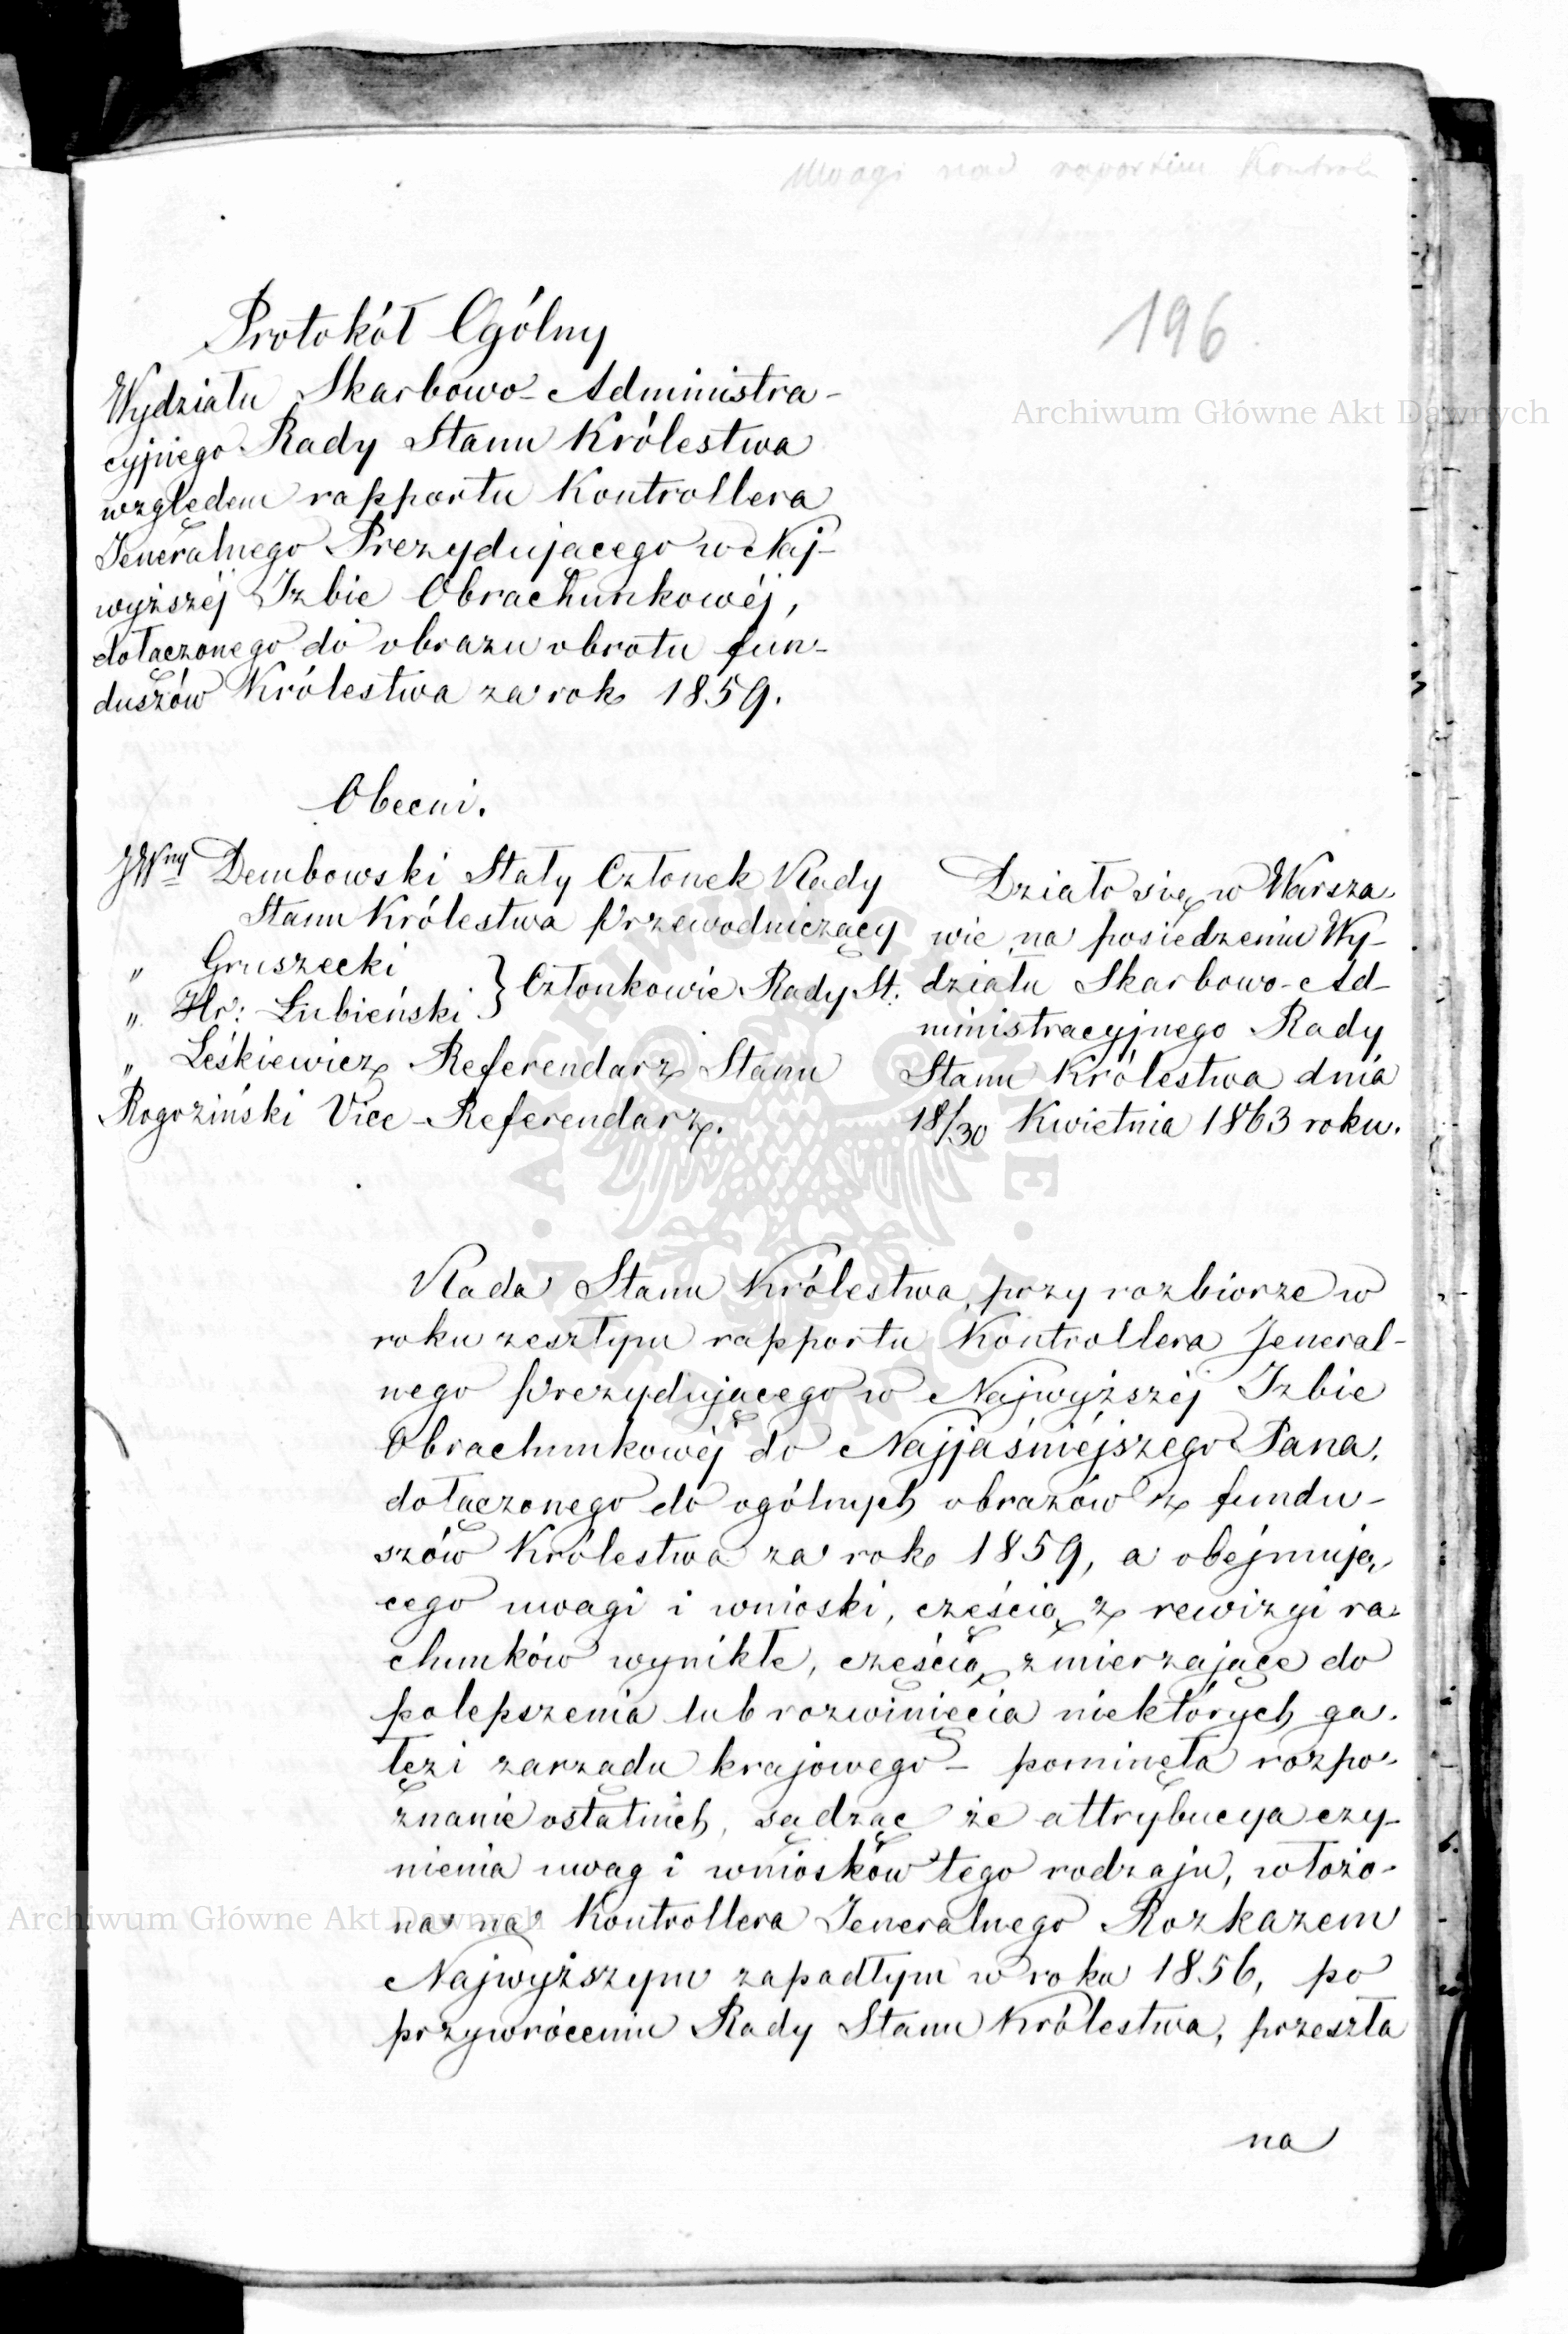 Uwagi nad raportem Kontrol
196
Protokół Ogólny
Wydziału Skarbowo-Administra-
cyjnego Rady Stanu Królestwa
względem rapportu Kontrollera
Jeneralnego Prezydującego w Naj-
wyższéj Izbie Obrachunkowéj,
dołączonego do obrazu obrotu fun-
duszów Królestwa za rok 1859.
Obecni.
JWny Dembowski Stały Członek Rady
Stanu Królestwa Przewodniczący
" Gruszecki
" Hr: Łubieński } Członkowie Rady St.
" Leśkiewicz Referendarz Stanu
Rogoziński Vice-Referendarz.
Działo się w Warsza-
wie na posiedzeniu Wy-
działu Skarbowo-Ad-
ministracyjnego Rady
Stanu Królestwa dnia
18/30 Kwietnia 1863 roku.
Rada Stanu Królestwa, przy rozbiorze w
roku zeszłym rapportu Kontrollera Jeneral-
nego Prezydującego w Najwyższéj Izbie
Obrachunkowéj do Najjaśniejszego Pana,
dołączonego do ogólnych obrazów z fundu-
szów Królestwa za rok 1859, a obejmują-
cego uwagi i wnioski, częścią z rewizyi ra-
chunków wynikłe, częścią zmierzające do
polepszenia lub rozwinięcia niektórych ga-
łęzi zarządu krajowego - pominęła rozpo-
znanie ostatnich, sądząc że attrybucya czy-
nienia uwag i wniosków tego rodzaju, włożo-
na na Kontrollera Jeneralnego Rozkazem
Najwyższym zapadłym w roku 1856, po
przywróceniu Rady Stanu Królestwa, przeszła
na
Archiwum Główne Akt Dawnych
Archiwum Główne Akt Dawnych